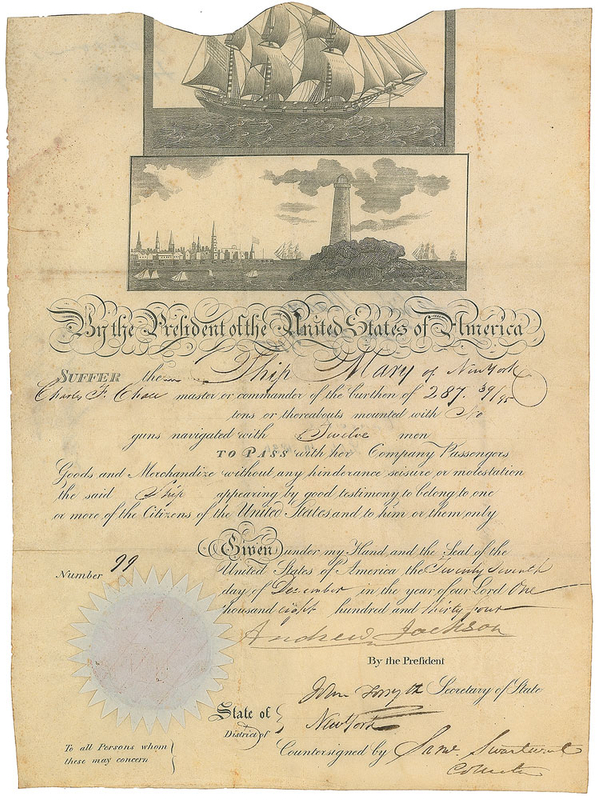 By the President of the United States of America
SUFFER the Ship Mary of New York
Charles F. Chase master or commander of the burthen of 287. 39/95
tons or thereabouts mounted with No
guns navigated with Twelve men
TO PASS with her Company Passengers
Goods and Merchandize without any hinderance seisure or molestation
the said Ship appearing by good testimony to belong to one
or more of the Citizens of the United States and to him or them only
Given under my Hand and the Seal of the
United States of America the Twenty Seventh
day of December in the year of our Lord One
thousand eight hundred and thirty four
Number 99
Andrew Jackson
By the Preſident
John Forsyth Secretary of State
State of
District of
New York
Countersigned by Saml Swartwout
Collector
To all Persons whom
these may concern